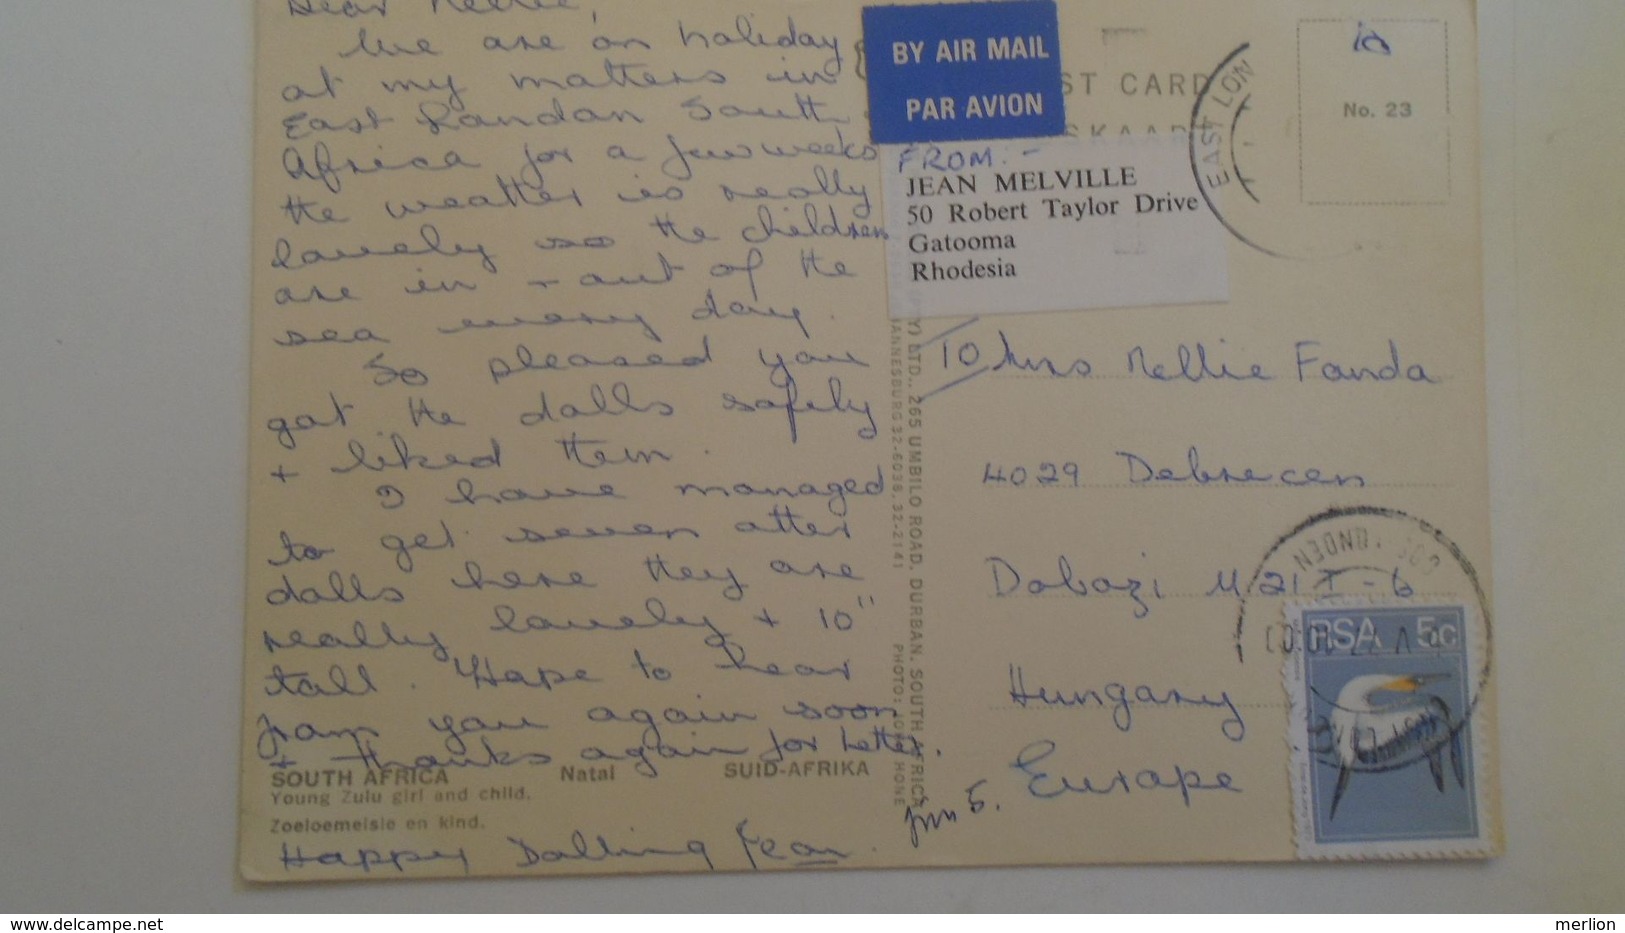 Dear Nellie,
We are on holiday
at my matters in
East London South
Africa for a few weeks
the weather is really
lovely so the children
are in + out of the
sea every day.
So pleased you
got the dolls safely
+ liked them.
I have managed
to get seven other
dolls here they are
really lovely + 10"
tall. Hope to hear
from you again soon
+ thanks again for letter.
SOUTH AFRICA Natal SUID-AFRIKA
Young Zulu girl and child.
Zoeloemeisie en kind.
Happy Dolling Jean.
BY AIR MAIL
PAR AVION
ST CARD
SKAART
EAST LON
No. 23
FROM:-
JEAN MELVILLE
50 Robert Taylor Drive
Gatooma
Rhodesia
(PTY) LTD., 265 UMBILO ROAD, DURBAN, SOUTH AFRICA
HANNESBURG 32-6038, 32-2141 PHOTO: JOHN HONE
TO Mrs Nellie Fanda
4029 Debrecen
Dobozi u 21 I - 6
Hungary
Europe
OOS LONDEN
RSA 5c
delcampe.net
merlion